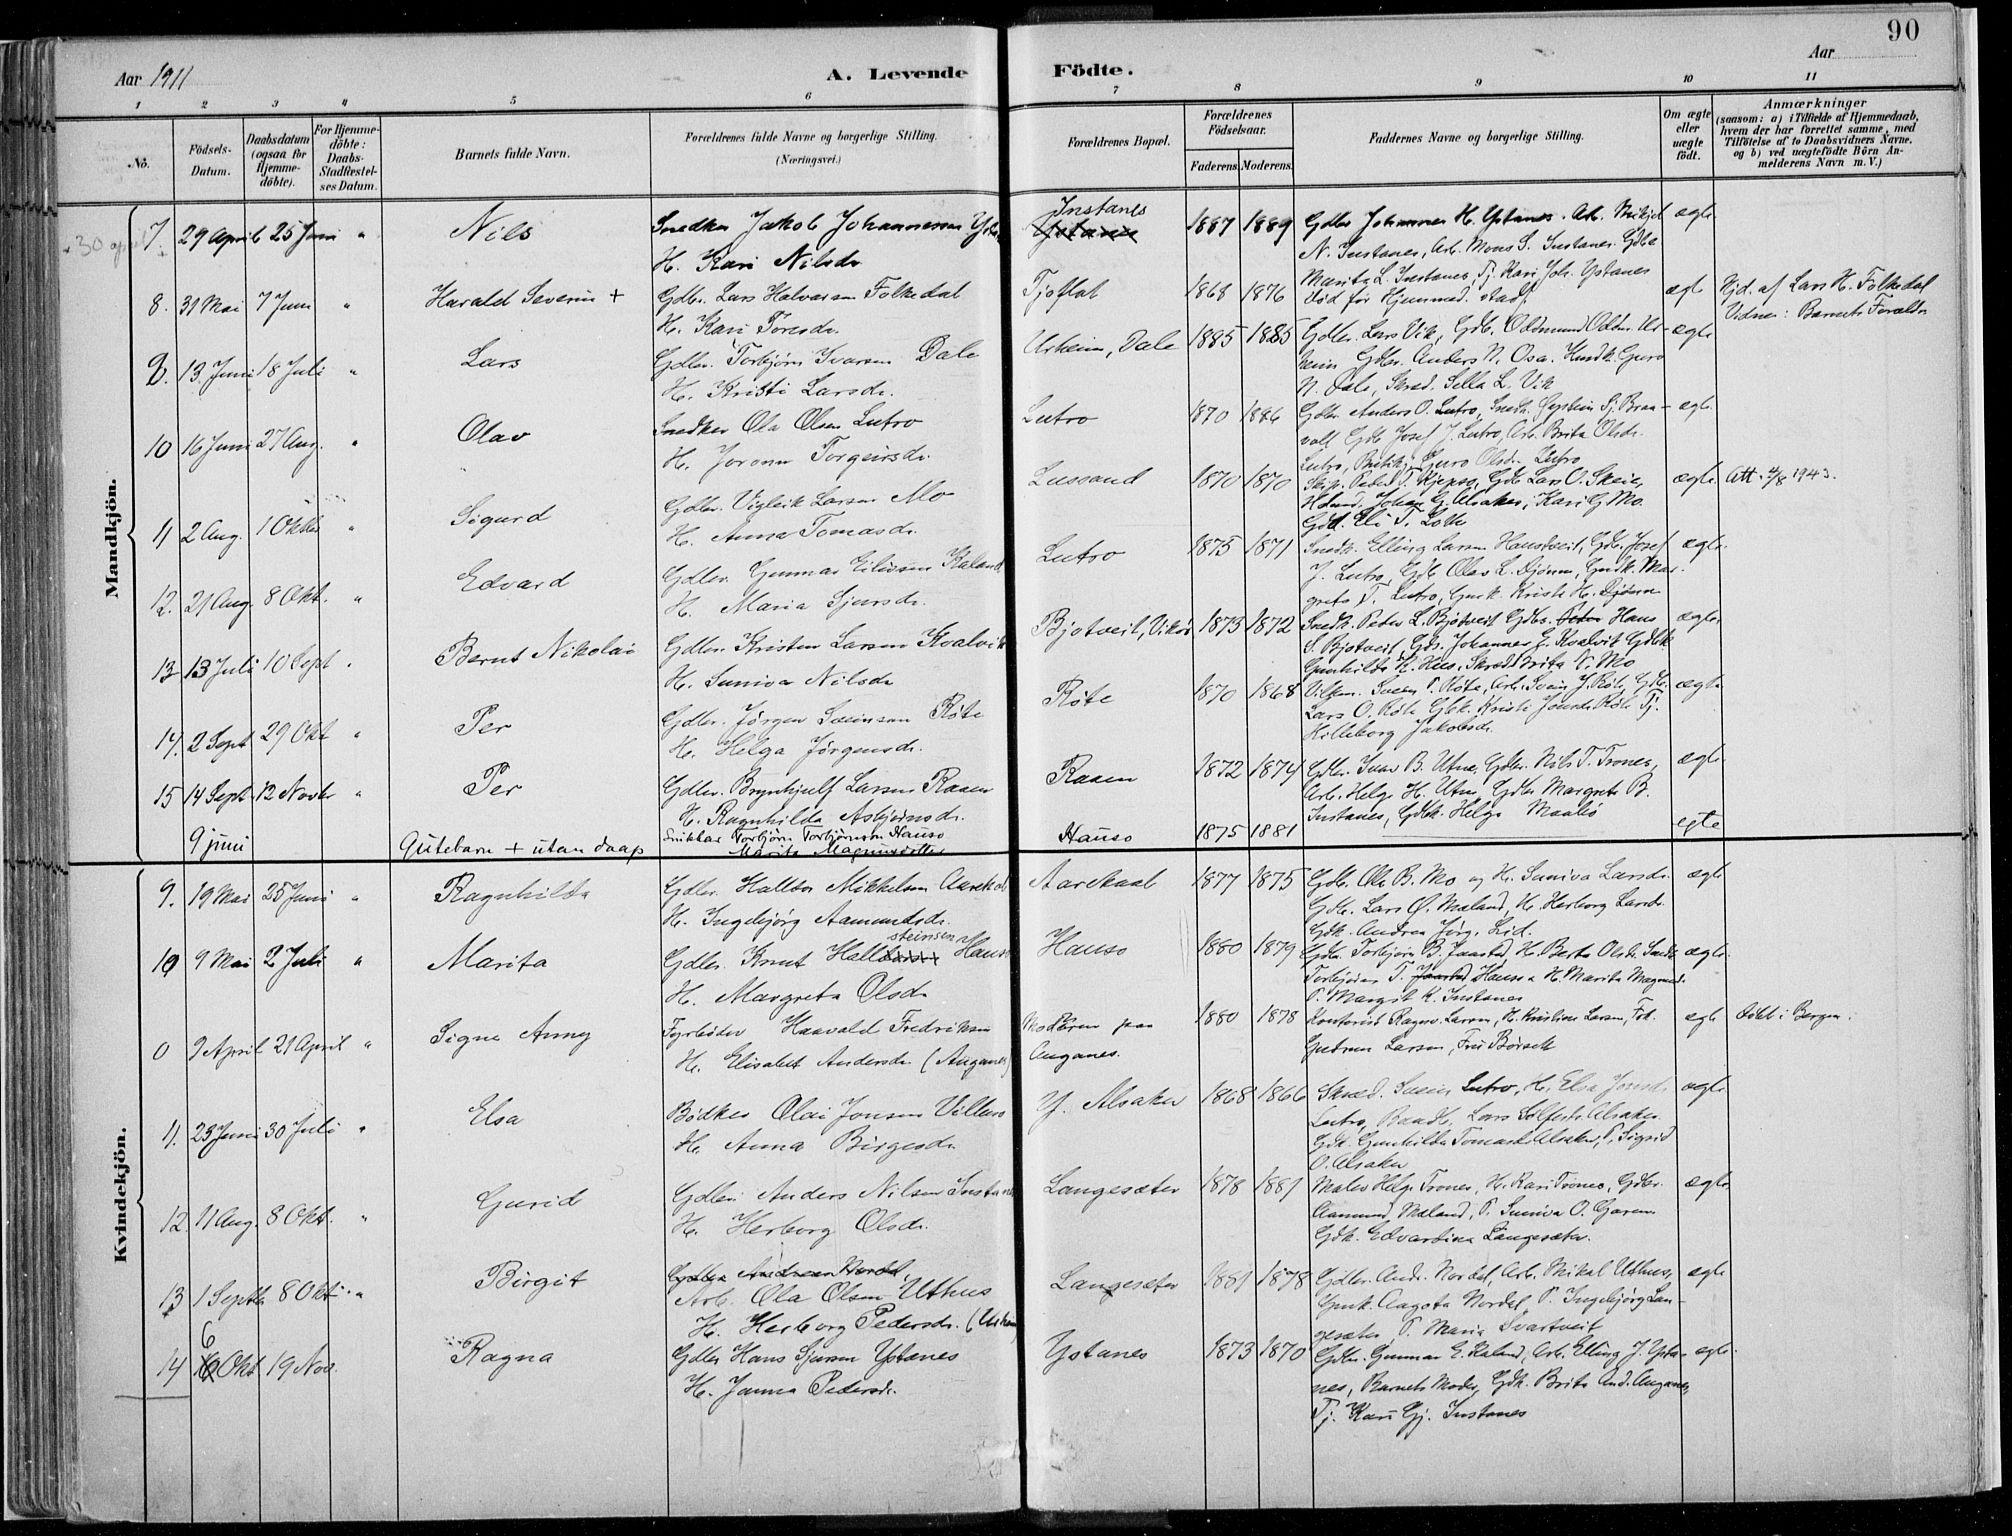 90
Aar 1911
A. Levende Födte.
Aar
1 2 3 4 5 6 7 8 9 10 11
No.
Födsels-Datum.
Daabsdatum (ogsaa for Hjemme-döbte).
For Hjemme-döbte: Daabs-Stadfæstel-ses Datum.
Barnets fulde Navn.
Forældrenes fulde Navne og borgerlige Stilling. (Næringsvei.)
Forældrenes Bopæl.
Forældrenes Födselsaar.
Faderens. Moderens.
Faddernes Navne og borgerlige Stilling.
Om ægte eller uægte födt.
Anmærkninger
(saasom: a) i Tilfælde af Hjemmedaab,
hvem der har forrettet samme, med
Tilföielse af to Daabsvidners Navne,
og b) ved uægtefödte Börn An-
melderens Navn m. V.)
Mandkjön.
7. 29 April 25 Juni " Nils Snedker Jakob Johannessen Instanes 1887 1889 Gdbr. Johannes H. Ystanes. Arb. Mikjel ægte
H. Kari Nilsdr. N. Instanes, Arb. Mons S. Instanes. Gdbr
Marita L. Instanes Tj. Kari Joh. Ystanes
8. 31 Mai 7 Juni " Harald Severin + Gdbr. Lars Halvorsen Folkedal Tjoflot 1868 1876 død før Hjemmed. stadf. ægte Hjd. af Lars H. Folkedal
H. Kari Toresdr. Vidner: Barnets Forældre
9. 13 Juni 18 Juli " Lars Gdbr. Torbjörn Ivarsen Dale Urheim, Dale 1885 1885 Gdbr. Lars Vik, Gdb. Oddmund Oddm. Ur- ægte
H. Kristi Larsdr. heim Gdbr. Anders N. Osa. Husdk. Guro
N. Dale, Skred. Sella L. Vik
10 16 Juni 27 Aug. " Olav Snedker Ola Olsen Lutro Lutro 1870 1886 Gdbr. Anders O. Lutro, Snedk. Øystein Sj. Braa- ægte
H. Joronn Torgeirsdr. voll Gdb Josef J. Lutro, Arb. Brita Olsdr.
Lutro, Guro Olsdr. Lutro
11 2 Aug. 1 Oktbr " Sigurd Gdbr. Vigleik Larsen Mo Lussand 1870 1870 Skip. Peder T. Kjepso, Gdb Lars O. Skeie, ægte. Att. 4/8 1943.
H. Anna Tomasdr. Johan G. Alsaker, Kari G. Mo.
Gdd. Eli T. Lothe
12. 21 Aug. 8 Okt. " Edvard Gdbr. Gunnar Eilivsen Kaland Lutro 1875 1871 Snedk. Elling Larsen Haustveit, Gdb. Josef ægte.
H. Maria Sjursdr. J. Lutro, Gdb Olav L. Djönne, Gmdk. Mar-
greta T. Lutro, Gmdk. Kristi H. Djönne
13 13 Juli 10 Sept " Bernt Nikolai Gdbr. Kristen Larsen Kvalvik Bjotveit, Vikör 1873 1872 Snedk. Peder L. Bjotveit Gdbr. Hans ægte
H. Suniva Nilsdr S. Bjotveit, Gdb. Johannes G. Kvalvik Gdbk
Gunhilda K. Hus. Skred. Brita T. Mo
14. 2 Sept 29 Okt " Per Gdbr. Jörgen Sveinsen Röte Röte 1870 1868 Svein T. Röte, Arb. Svein J. Röte, Gdb. ægte
H. Helga Jörgensdr. Lars O. Röte Gbk. Kristi Jonsdr. Röte Tj.
Hilleborg Jakobsdr.
15 14 Sept 12 Novbr " Per Gdbr. Brynhjulf Larsen Raaen Raaen 1872 1874 Gdbr. Ivar B. Utne, Gdbr. Nils T. Trones, ægte
H. Ragnhilda Asbjörnsdr. Arb. Helge H. Utne, Gdbr Margreta B.
Instanes, Gdbk. Helga Maalsö
9 juni Gutebarn + utan daap Snikkar Torbjörn Torbjörnson Hauso Hauso 1875 1881 egte
Marita Magnusdotter
Kvindekjön.
9. 19 Mai 25 Juni " Ragnhilda Gdbr. Halltor Mikkelsen Aarekol Aarekaal 1877 1875 Gdbr. Ole B. Mo og H. Suniva Larsdr. ægte
H. Ingebjörg Aamundsdr. Gdbr. Lars Ø. Mæland, H. Herborg Larsdr.
Gdk. Andrea Jörg. Lid.
10 9 Mai 2 Juli " Marita Gdbr. Knut Hallsteinsen Hauso Hauso 1880 1879 Gdbr. Torbjörn B. Jaastad, H. Berta Olsdr. Snedk ægte.
H. Margreta Olsdr Torbjörn T. Jaastad Hauso & H. Marita Magnusd.
P. Margit K. Instanes
0 9 April 21 April " Signe Anny Fyrböder Haavald Fredriksen Moderen paa 1880 1878 Kontorist Ragnv. Larsen, H. Kristine Larsen, Frk. ægte Döbt i Bergen.
H. Elisabet Andersdr. (Auganes) Auganes. Gudrun Larsen, Fru Börsett
11. 23 Juni 30 Juli " Elsa Bödker Olai Jonsen Villure Y. Alsaker 1868 1866 Skred. Svein Lutro, H. Elsa Jonsd. ægte
H. Anna Birgesdr. Lutro, Baadb. Lars Sölfestr. Alsaker
Gdk Gunhilda Tomasdr. Alsaker, P. Sigrid
O. Alsaker
12. 11 Aug. 8 Okt. " Gurid Gdbr. Anders Nilsen Instanes Langesæter 1878 1881 Maler Helge Trones, H. Kari Trones, Gdbr. ægte
H. Herborg Olsdr. Aamund Mæland, P. Suniva O. Garen
Gdk. Edvardina Langesæter.
13 1 Septb 8 Okt. " Birgit Gdbr. Andreas Nordal, Langesæter 1881 1878 Gdbr. Andr. Nordal, Arb. Mikal Uthus, ægte
Arb. Ola Olsen Uthus Gmk. Aagota Nordal, P. Ingebjörg Lan-
H. Herborg Pedersdr. (Urheim) gesæter, P. Maria Svartveit
14 6 Okt 19 Nov. Ragna Gdbr Hans Sjursen Ystanes Ystanes 1873 1870 Gdbr. Gunnar E. Kaland, Arb. Elling J. Ysta- ægte.
H. Janna Pedersdr. nes, Barnets Moder, Gdk. Brita And. Auganes,
Tj. Kari Gj. Instanes